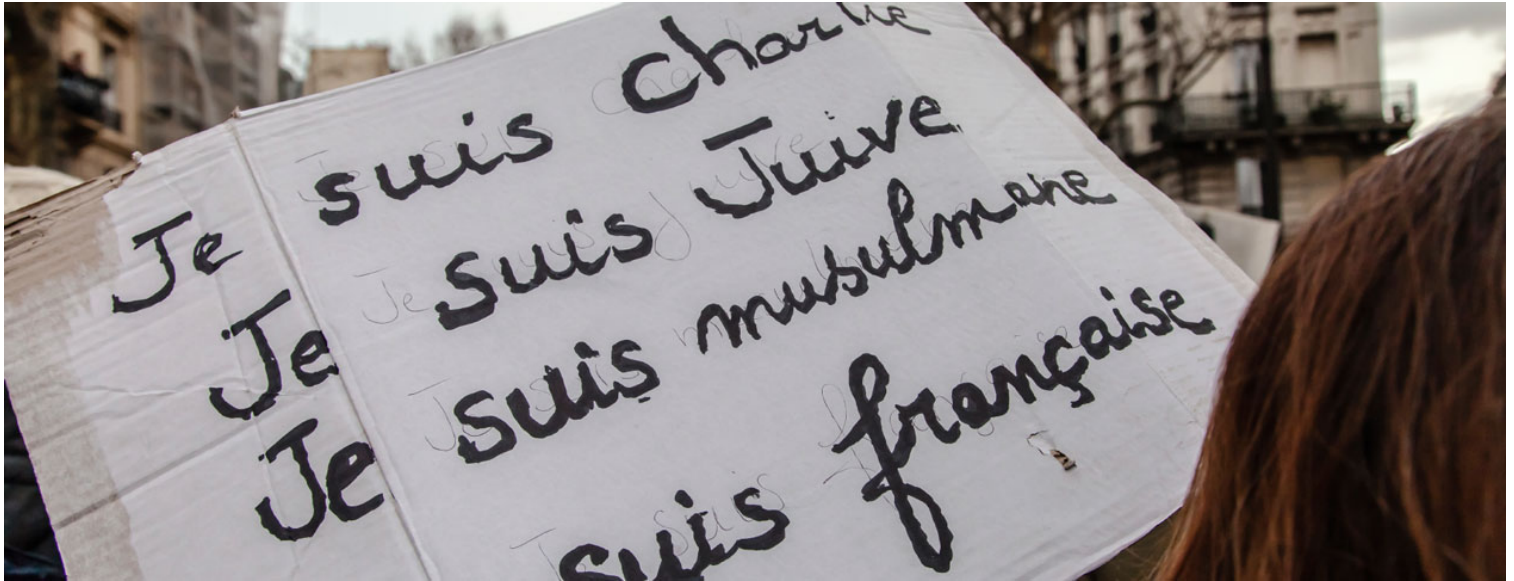 Je suis Charlie
Je suis Juive
Je suis musulmane
suis française